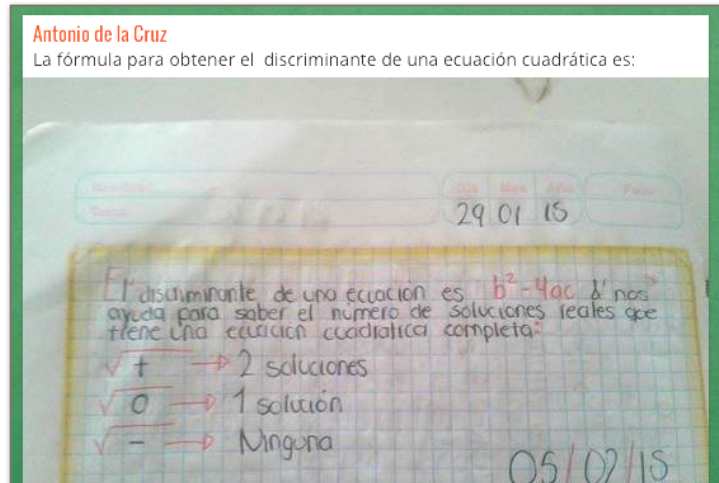 Antonio de la Cruz
La fórmula para obtener el discriminante de una ecuación cuadrática es:
Día Mes Año
29 01 15
El discriminante de una ecuacion es b²-4ac & nos
ayuda para saber el número de soluciones reales que
tiene una ecuación cuadratica completa:
√+ → 2 soluciones
√0 → 1 solución
√- → Ninguna
05/02/15